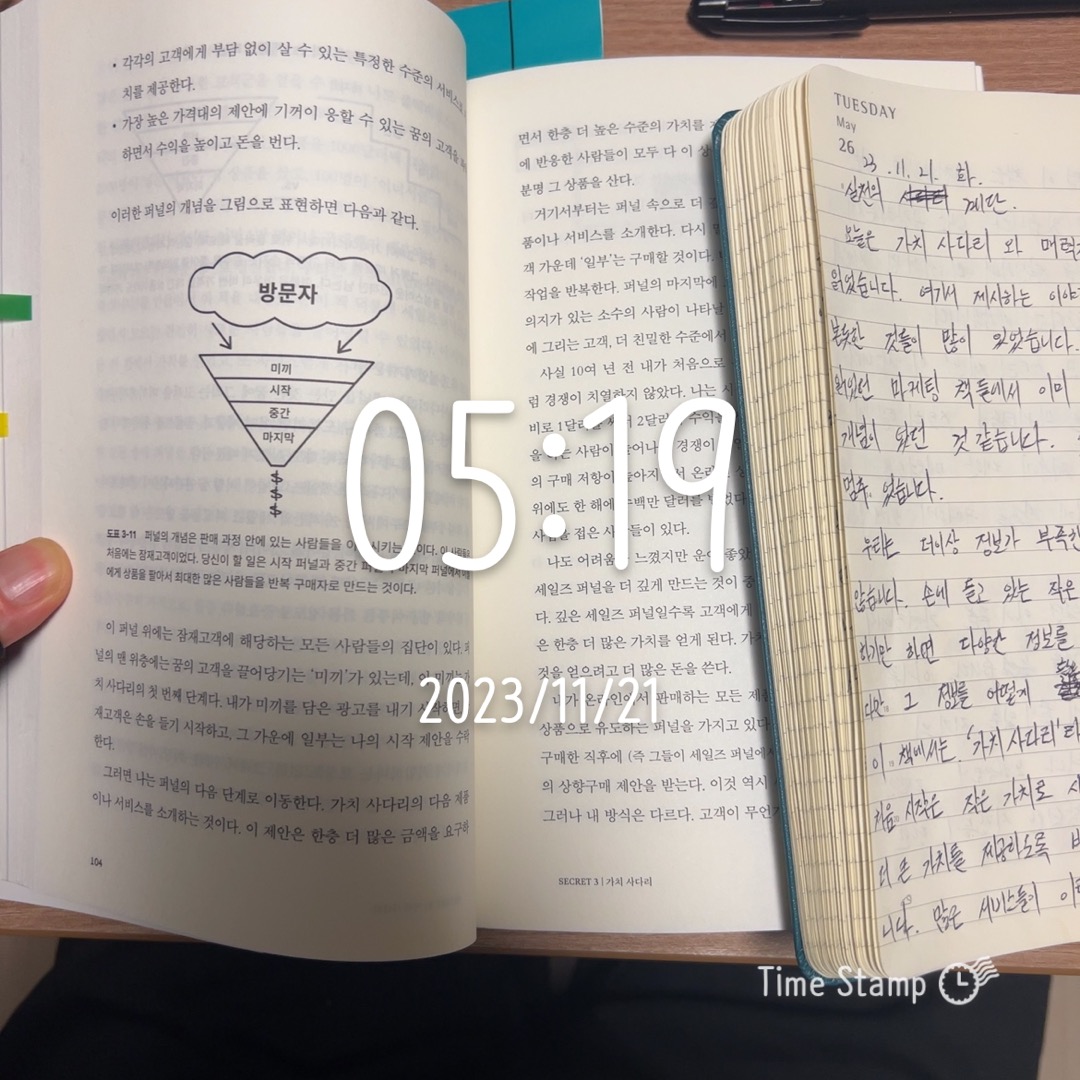 • 각각의 고객에게 부담 없이 살 수 있는 특정한 수준의 서비스
치를 제공한다.
• 가장 높은 가격대의 제안에 기꺼이 응할 수 있는 꿈의 고객을
하면서 수익을 높이고 돈을 번다.
이러한 퍼널의 개념을 그림으로 표현하면 다음과 같다.
방문자
미끼
시작
중간
마지막
$
$
$
도표 3-11 퍼널의 개념은 판매 과정 안에 있는 사람들을 이 시키는 이다. 이 사람들은
처음에는 잠재고객이었다. 당신이 할 일은 시작 퍼널과 중간 퍼 마지막 퍼널에서
에게 상품을 팔아서 최대한 많은 사람들을 반복 구매자로 만드는 것이다.
이 퍼널 위에는 잠재고객에 해당하는 모든 사람들의 집단이 있다. 퍼
널의 맨 위층에는 꿈의 고객을 끌어당기는 '미끼'가 있는데, 이 미끼는
치 사다리의 첫 번째 단계다. 내가 미끼를 담은 광고를 내기 시작하면
재고객은 손을 들기 시작하고, 그 가운데 일부는 나의 시작 제안을 수락
한다.
그러면 나는 퍼널의 다음 단계로 이동한다. 가치 사다리의 다음 제품
이나 서비스를 소개하는 것이다. 이 제안은 한층 더 많은 금액을 요구하
104
면서 한층 더 높은 수준의 가치를
에 반응한 사람들이 모두 다 이 상
분명 그 상품을 산다.
거기서부터는 퍼널 속으로 더
품이나 서비스를 소개한다. 다시
객 가운데 '일부'는 구매할 것이다.
작업을 반복한다. 퍼널의 마지막에
의지가 있는 소수의 사람이 나타날
에 그리는 고객, 더 친밀한 수준에서
사실 10여 년 전 내가 처음으로
럼 경쟁이 치열하지 않았다. 나는
비로 1달러 2달러 수익
을 사람 어나 경쟁이
의 구매 저항이 높아지 서 온라
위에도 한 해에 수백만 달러를 벌었다
사 을 접은 사 들이 있다.
나도 어려움 느꼈지만 운이 좋았
세일즈 퍼널을 더 깊게 만드는 것이 중
다. 깊은 세일즈 퍼널일수록 고객에게
은 한층 더 많은 가치를 얻게 된다. 가치
것을 얻으려고 더 많은 돈을 쓴다.
내가 온라인에서 판매하는 모든 제품
상품으로 유도하는 퍼널을 가지고 있다
구매한 직후에 (즉 그들이 세일즈 퍼널에서
의 상향구매 제안을 받는다. 이것 역시
그러나 내 방식은 다르다. 고객이 무언가
SECRET 3 | 가치 사다리
TUESDAY
May
26
23. 11. 21. 화.
실천의 계단.
오늘은 가치 사다리 와 매력
읽었습니다. 여기서 제시하는 이야
것들이 많이 있었습니다.
마케팅 책들에서 이미
개념이 였던 것 같습니다.
멈추 었습니다.
우리는 더이상 정보가 부족한
않습니다. 손에 들고 있는 작은
하기만 하면 다양한 정보를
다만 그 정보를 어떻게
이 책에서는 '가치 사다리'라
처음 시작은 작은 가치로
더 큰 가치를 제공하도록
니다. 많은 서비스들이
05:19
2023/11/21
Time Stamp